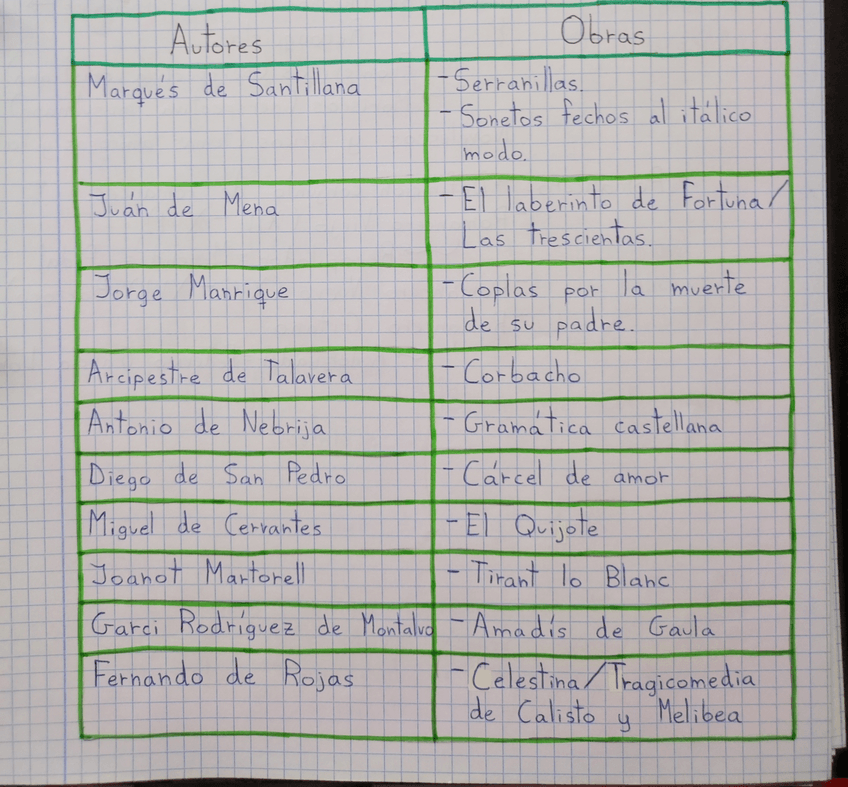 Autores
Obras
Marqués de Santillana
- Serranillas.
- Sonetos fechos al itálico
modo.
Juán de Mena
- El laberinto de Fortuna/
Las trescientas.
Jorge Manrique
- Coplas por la muerte
de su padre.
Arcipestre de Talavera
- Corbacho
Antonio de Nebrija
- Gramática castellana
Diego de San Pedro
- Cárcel de amor
Miguel de Cervantes
- El Quijote
Joanot Martorell
- Tirant lo Blanc
Garci Rodríguez de Montalvo
- Amadís de Gaula
Fernando de Rojas
- Celestina/Tragicomedia
de Calisto y Melibea